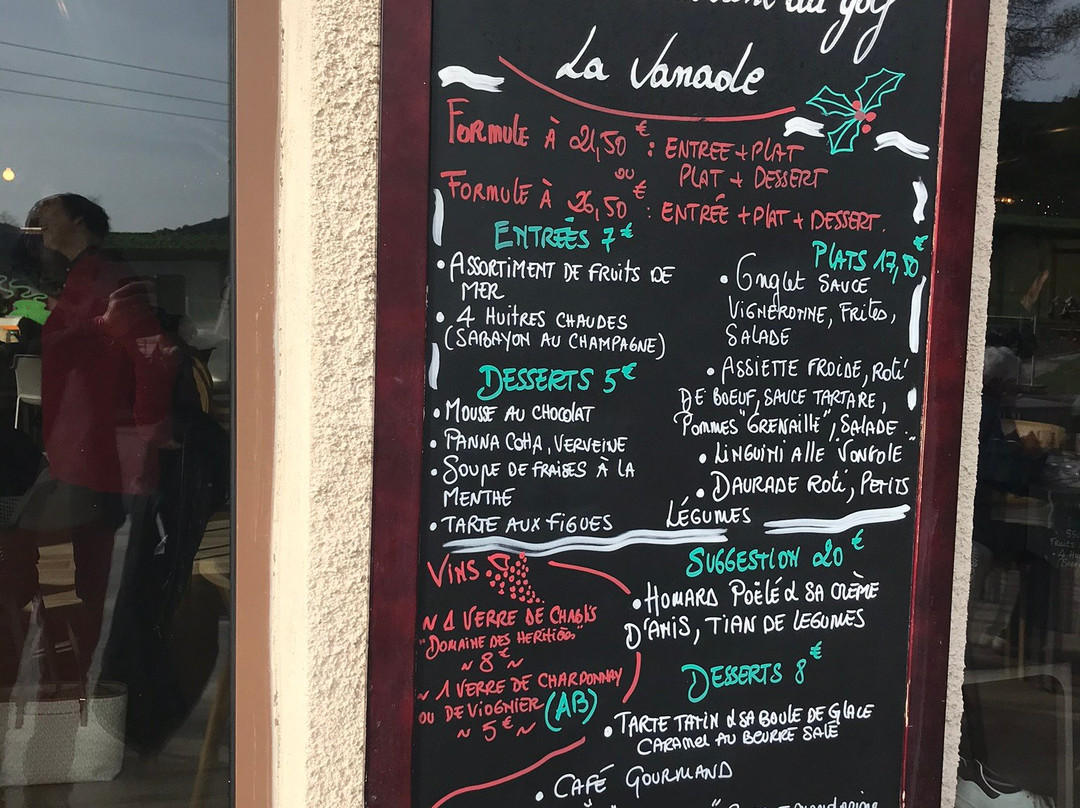 du golf
La Vanade
FORMULE À 21,50€ : ENTREE + PLAT
OU PLAT + DESSERT
FORMULE À 26,50€ : ENTRÉE + PLAT + DESSERT.
ENTRÉES 7€
• ASSORTIMENT DE FRUITS DE
MER
• 4 HUITRES CHAUDES
(SABAYON AU CHAMPAGNE)
DESSERTS 5€
• MOUSSE AU CHOCOLAT
• PANNA COTTA, VERVEINE
• SOUPE DE FRAISES À LA
MENTHE
• TARTE AUX FIGUES
PLATS 17,50€
• Onglet SAUCE
VIGNERONNE, FRITES,
SALADE
• ASSIETTE FROIDE, ROTI
DE BOEUF, SAUCE TARTARE,
POMMES "GRENAILLE", SALADE.
• LINGUINI ALLE VONGOLE
• DAURADE ROTI, PETITS
LÉGUMES
VINS
~ 1 VERRE DE CHABLIS
"DOMAINE DES HERITIERS"
~ 8€ ~
~ 1 VERRE DE CHARDONNAY
OU DE VIOGNIER (AB)
~ 5€ ~
SUGGESTION 20€
• HOMARD POËLÉ & SA CRÈME
D'ANIS, TIAN DE LEGUMES
DESSERTS 8€
• TARTE TATIN & SA BOULE DE GLACE
CARAMEL AU BEURRE SALÉ
• CAFÉ GOURMAND